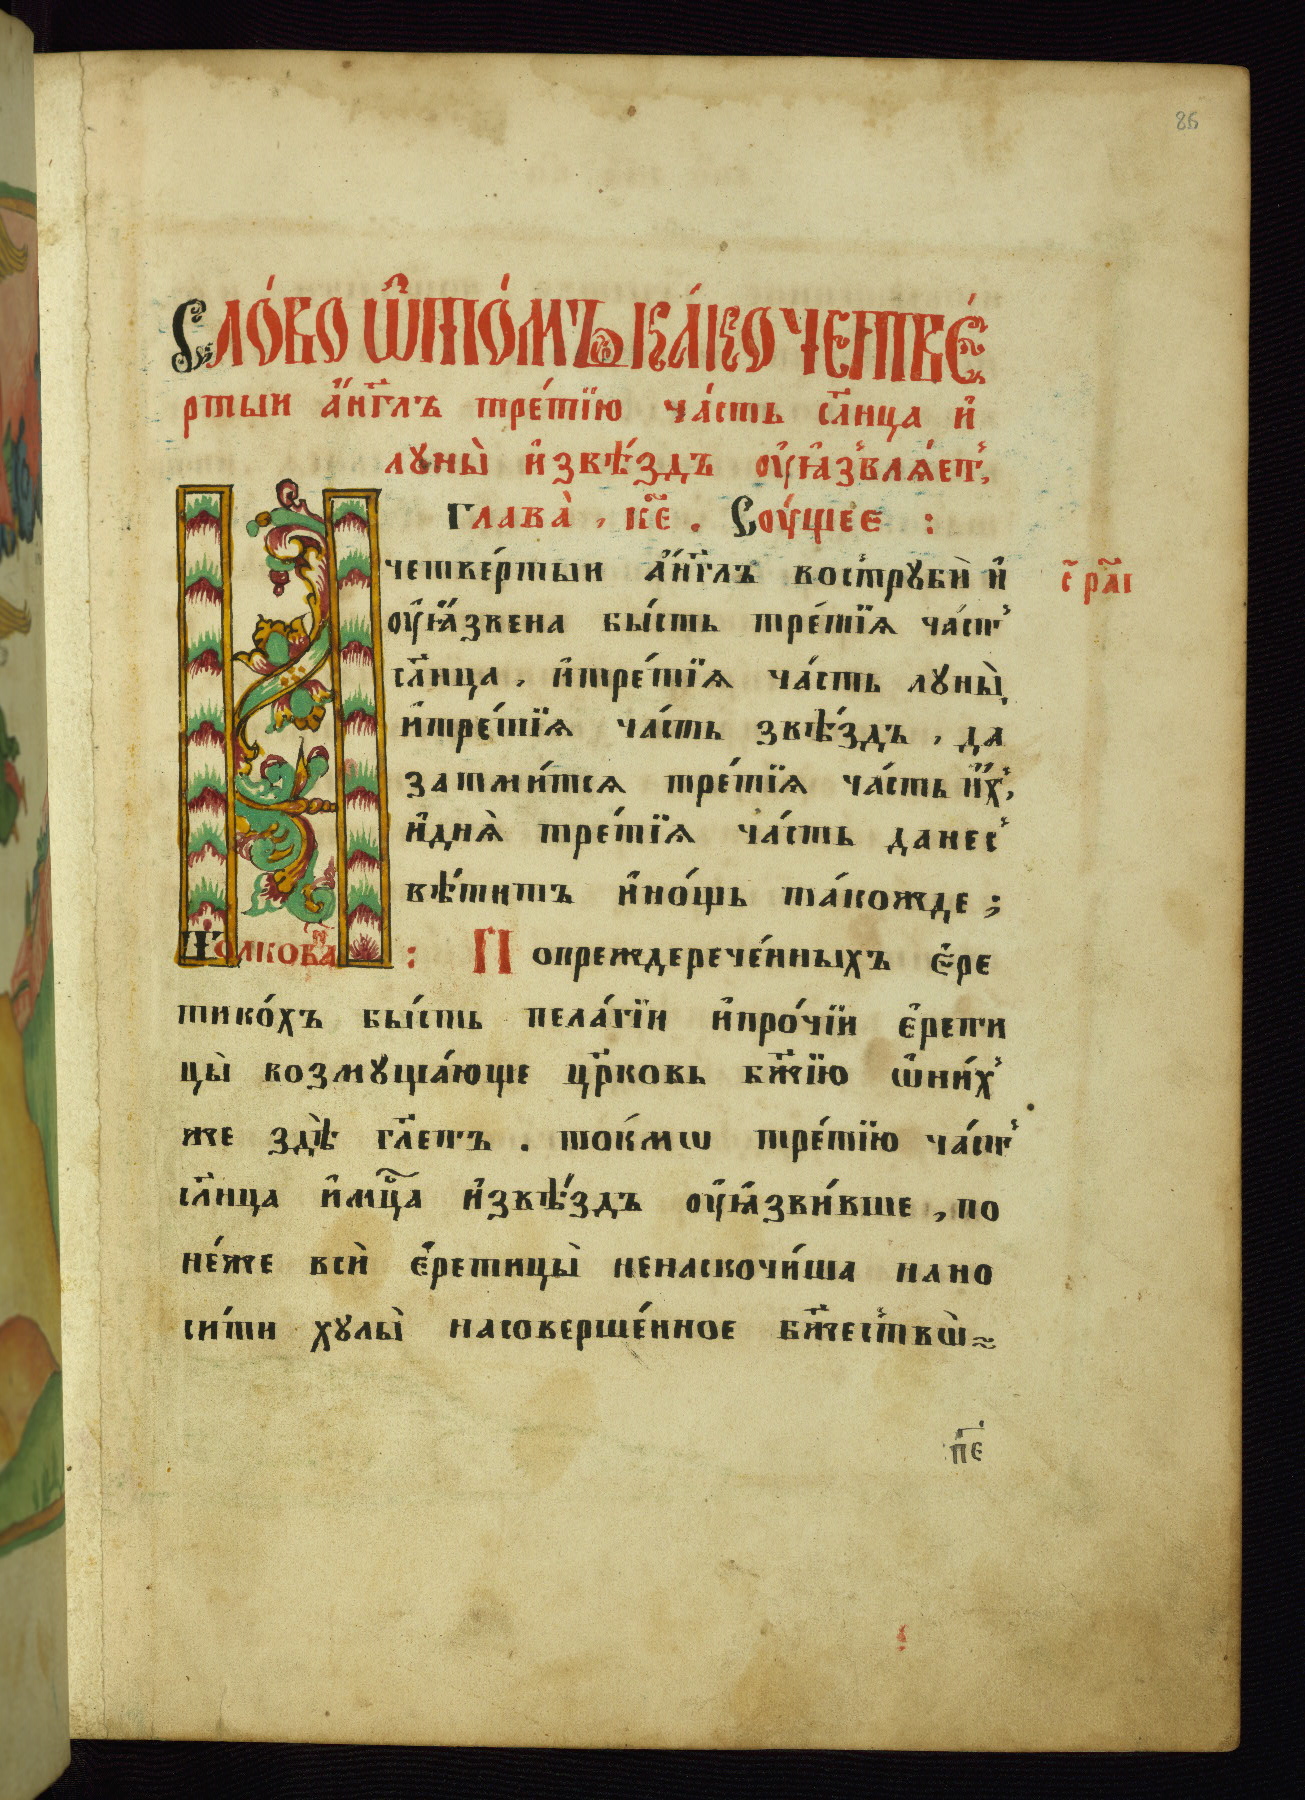 85
Сло́во ѿто́мъ ка́ко четве́
ртыи а҆́нг҃лъ тре́тїю ча́сть сл҃нца и҆
луны̀ и҆звѣ́здъ оу҆ꙗ҆звлѧ́етъ,
Глава̀, к҃е. Соу́щее :
И четве́ртыи а҆́нг҃лъ вострꙋбѝ и҆
оу҆ꙗ҆́звена бы́сть тре́тїѧ ча́ст
сл҃нца, и҆тре́тїѧ ча́сть лꙋны̀,
и҆тре́тїѧ ча́сть звѣ́здъ, да
затми́тсѧ тре́тїѧ ча́сть и҆́х,
и҆днѧ̀ тре́тїѧ ча́сть данес
вѣ́титъ и҆но́щь та́кожде ;
с҃ ра҃і
Толкова н : Попреждерече́нныхъ є҆ре
тико́хъ бы́сть пела́гїи и҆про́чїи є҆рети
цы̀ возмꙋща́юще цр҃ковь бж҃їю ѿни́х
же здѣ̀ гл҃етъ. токмѡ тре́тїю ча́ст
сл҃нца и҆мц҃а и҆звѣ́здъ оу҆ꙗ҆зви́вше, по
не́же всѝ є҆ретицы̀ ненаскочи́ша нано
си́ти хꙋлы̀ насоверше́нное бж҃ествѡ̀
п҃е